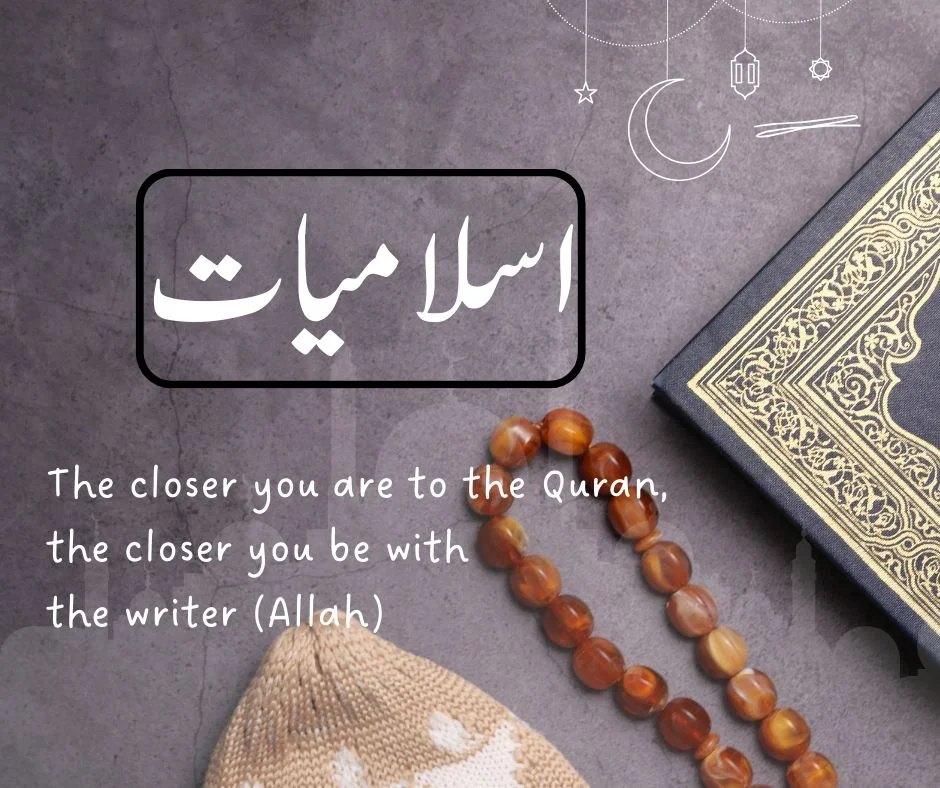 اسلامیات
The closer you are to the Quran,
the closer you be with
the writer (Allah)